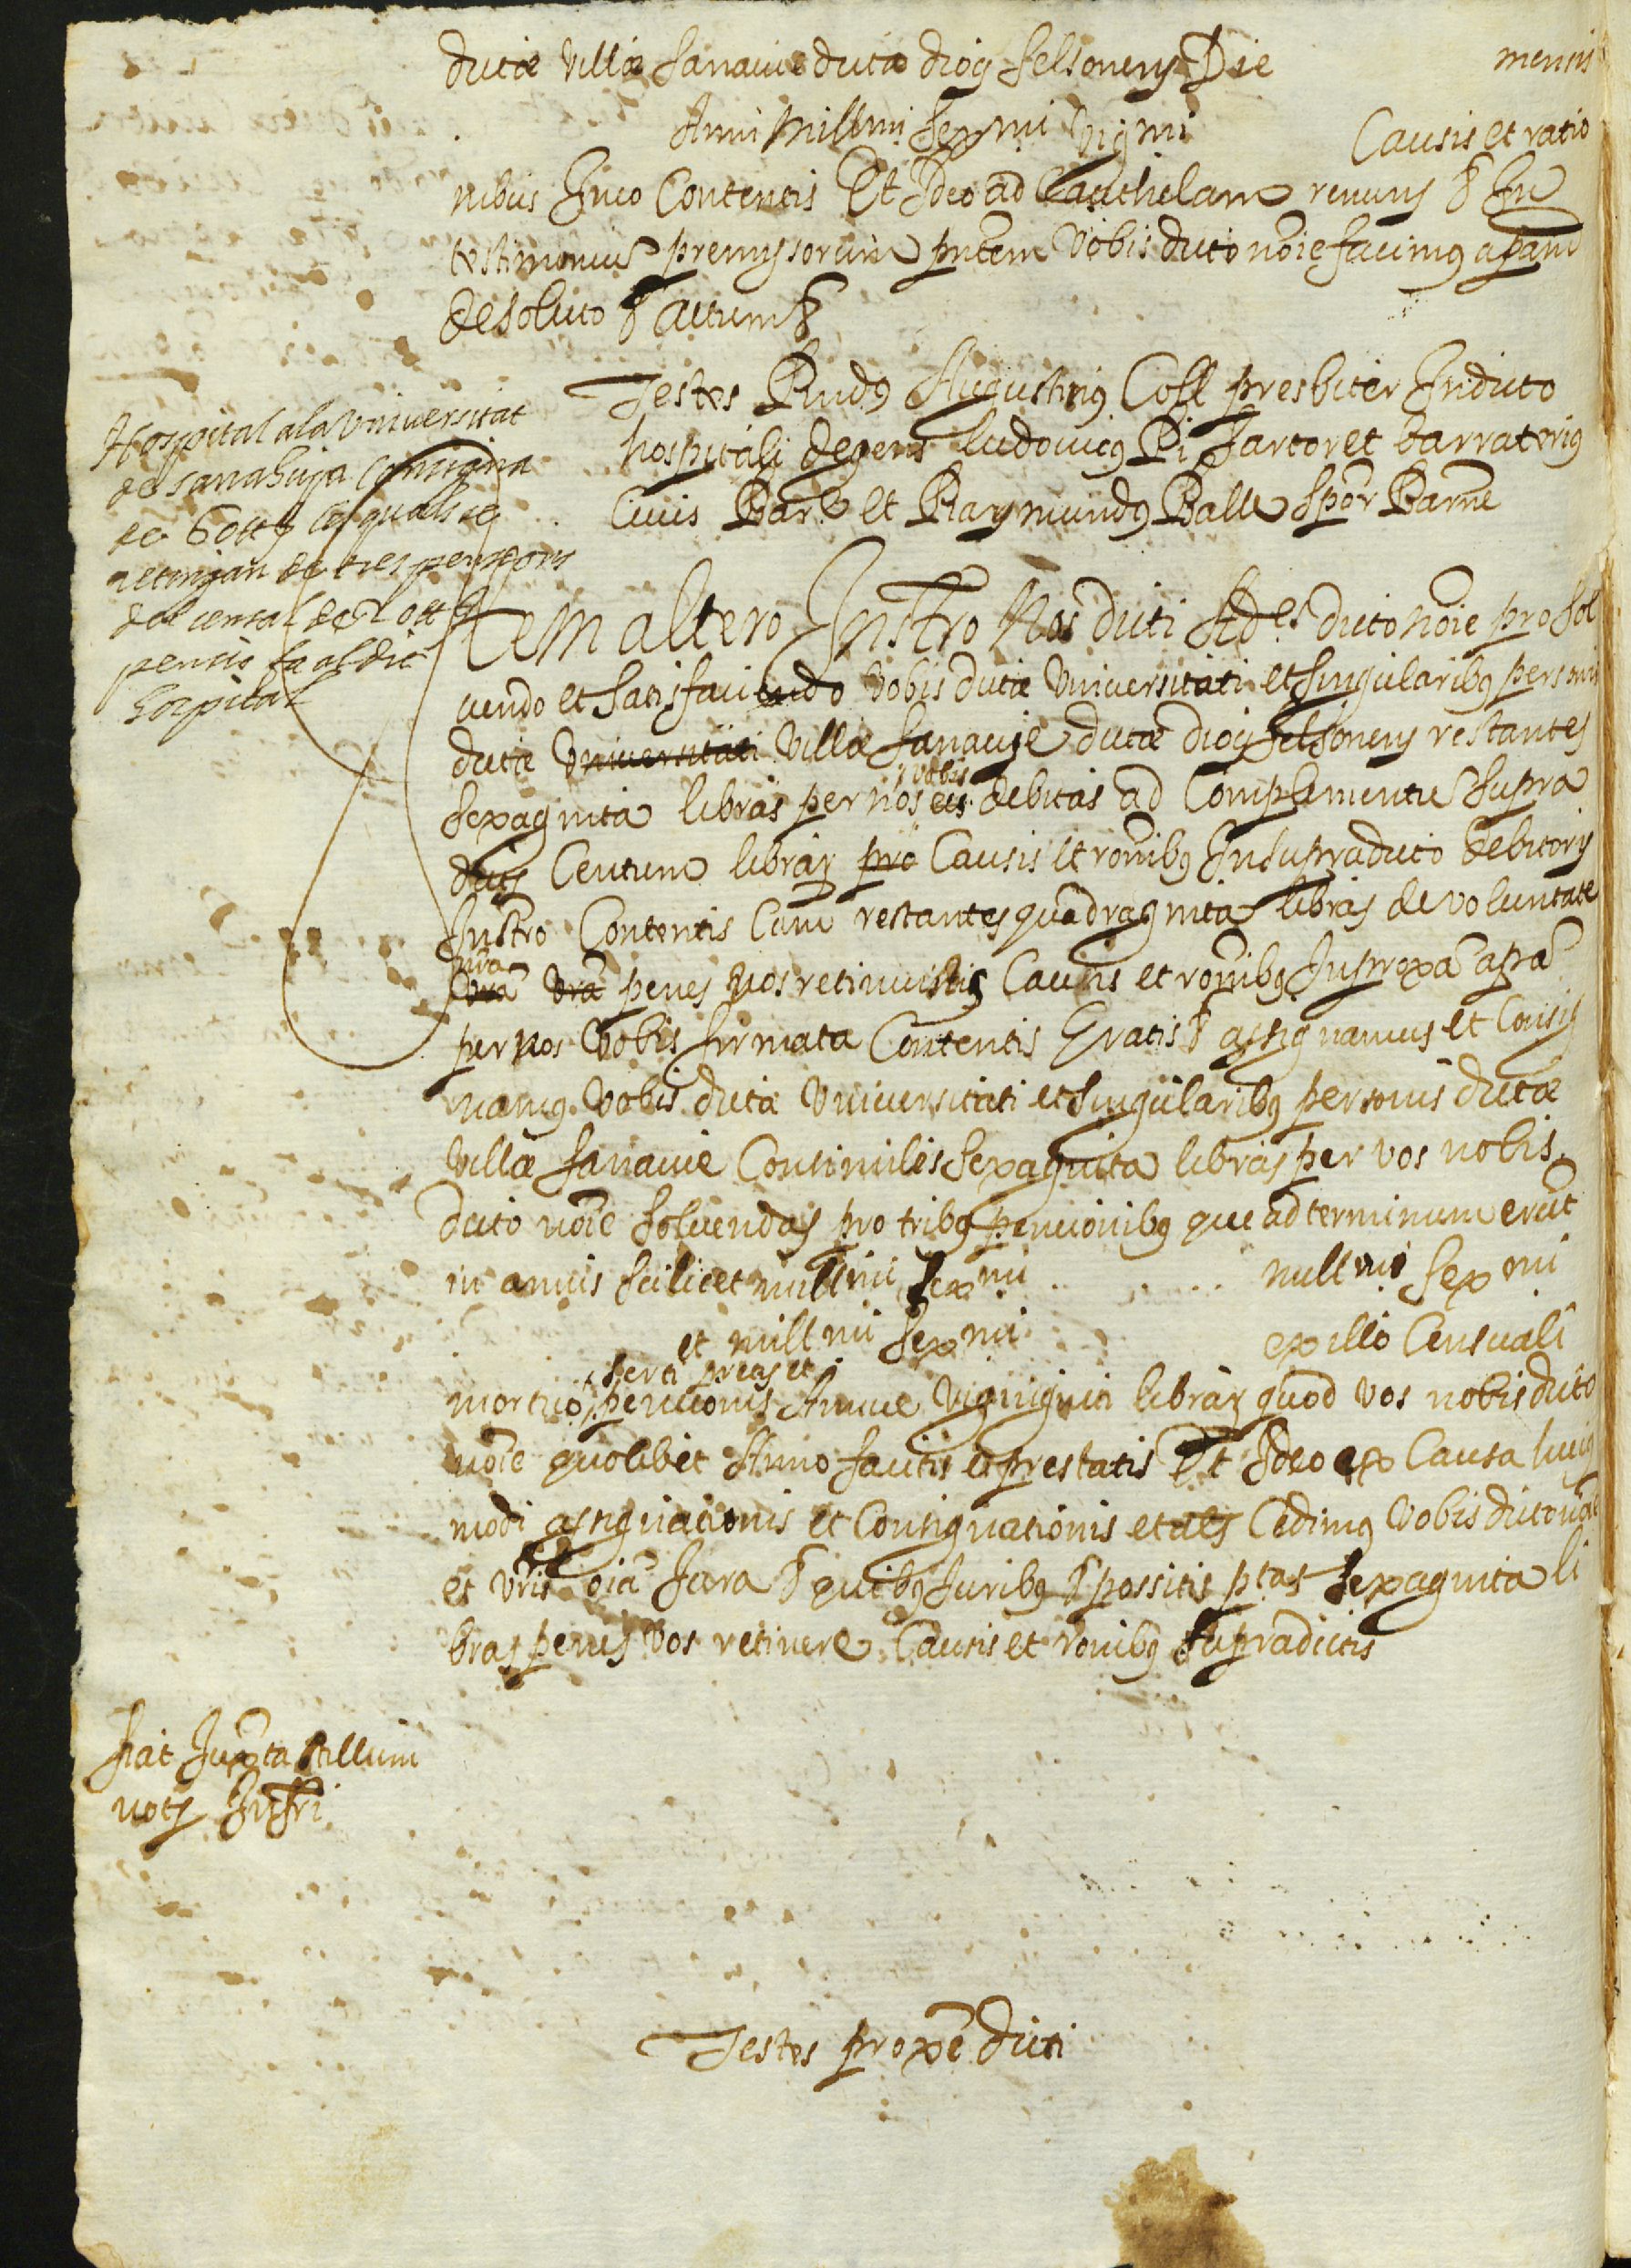 dictæ villæ Sanauie dictæ diocis Selsonensis Die mensis
Anni Millmi Sexmi vigmi Causis et ratio
nibus In eo Contentis Et Ideo ad Cauthelam renuns & In
testimonium premyssorum pntem vobis dicto noie facimus apam
de soluto & actum &
Testes Rndus Augustinus Coll presbiter In dicto
hospitali degens ludouicus Pi Sartor et barraterius
Ciuis Bare et Raymundus Balle Spor Barne
Hospital a la Vniuersitat
de Sanahuja Consigna
de 60 ll les quals se
retingan de tres pencions
del censal de 20 ll
pencio fa al dit
hospital
Item altero Instro Nos dicti Ades dicto noie pro sol
uendo et satisfaciendo vobis dictæ Vniuersitati et singularibus personis
dictæ Vniuersitati villæ Sanauie dictæ diocis Selsonensis restantes
sexaginta libras per nos eis vobis debitas ad Complementum supra
dictis Centum librar pro Causis et ronibus In supradicto debitorii
Instro Contentis Cum restantes quadraginta libras de voluntate
nra vra vra penes vos retinuistis Causis et ronibus In proxa apa
per nos vobis firmata Contentis Gratis & assignamus et Consig
namus vobis dictæ Vniuersitati et singularibus personis dictæ
villæ Sanauie Consimiles sexaginta libras per vos nobis
dicto noie soluendas pro tribus pencionibus que ad terminum erunt
in annis scilicet millmi sexmi millmi sexmi
et millmi sexmi ex illo Censuali
mortuo serti precii et pencionis Annue viginti librar quod vos nobis dicto
noie quolibet Anno facitis et prestatis Et Ideo ex Causa huius
modi assignationis et Consignationis et als Cedimus vobis dicto noie
et vris oia Jura & quibus Juribus & possitis ptas sexaginta li
bras penes vos retinere Causis et ronibus supradictis
fiat Juxta stillum
notis Instri
Testes proxe dicti